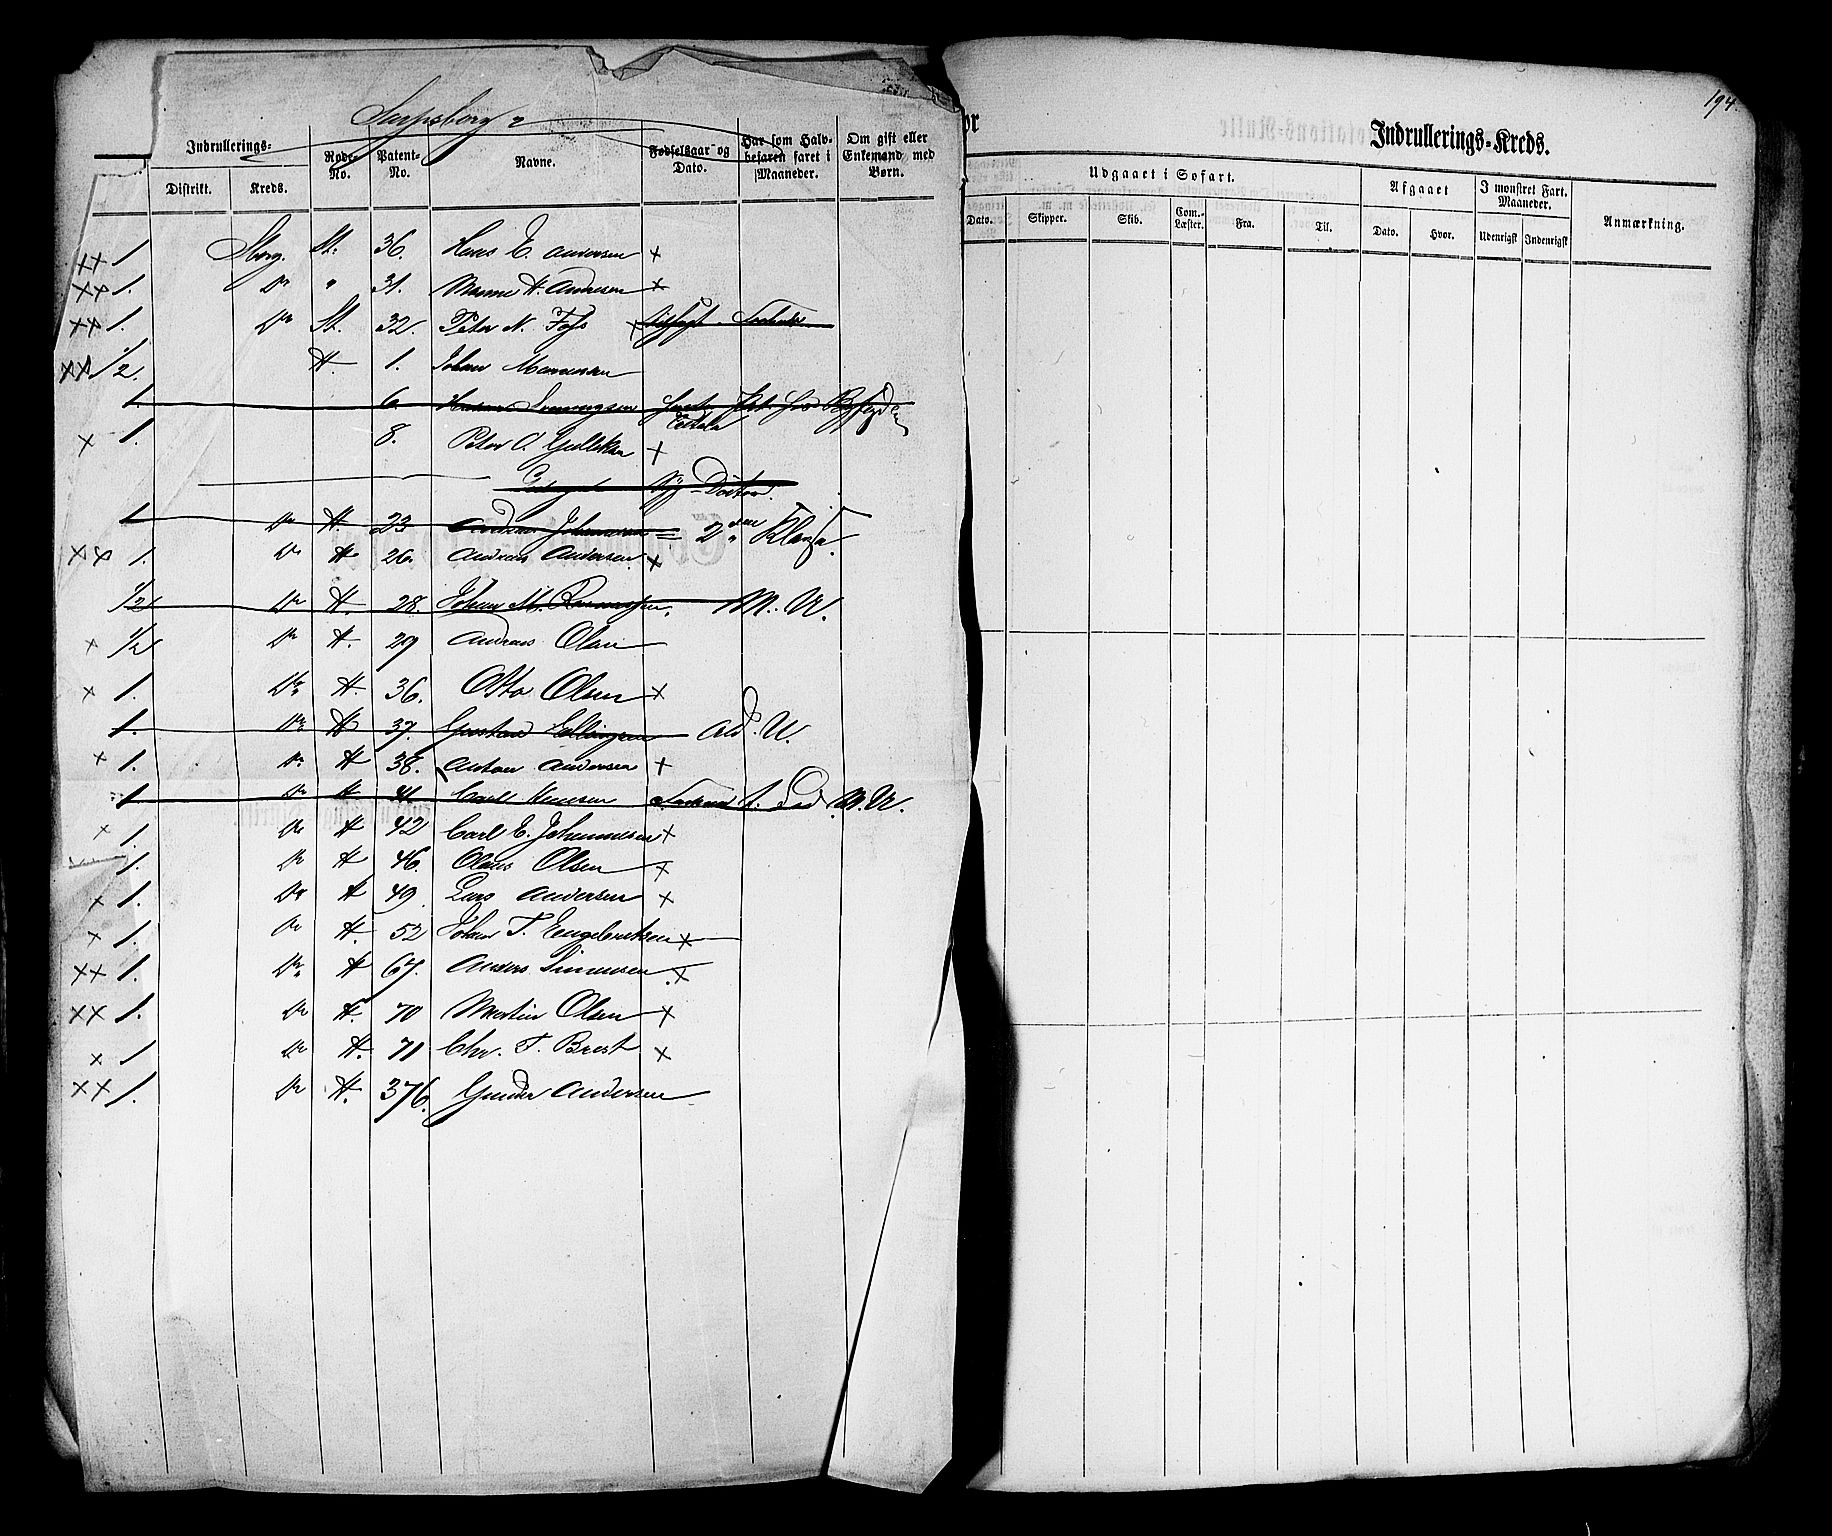 194.
Sarpsborg
Indrullerings-
Distrikt. Kreds. Rode-No. Patent-No. Navne. Fødselsaar og Dato. Har som Halvbefaren faret i Maaneder. Om gift eller Enkemand med Børn.
Indrullerings-Kreds.
Udgaaet i Sofart. Afgaaet I monstret Fart. Maaneder.
Dato. Skipper. Skib. Com.-Læster. Fra. Til. Dato. Hvor. Udenrigst Indenrigst Anmærkning.
xx 1 Sborg. St. 36. Hans E. Andersen x
xx 1. Do " 31. H. Andresen x
xx 1. Do St. 32. Peter N. Foss
xx 1/2. H. 1. Johan
1. 6.
x 1. 8. Peter O. Gulliksen x
1 Do H. 23 Andreas Johannesen 2den Klasse.
xx 1. Do H. 26. Andreas Andersen x
1/2 Do H. 28. Johan M. M. U.
x 1/2 Do H. 29 Andreas Olsen
x 1. Do H. 36. Otto Olsen x
1. Do H 37. Gustav Ellingsen U.
x 1. Do H 38. Anton Andersen x
1 Do H 41 Carl Hansen M. U.
x 1. Do H 42 Carl E. Johannesen x
1. Do H 46. Olaus Olsen x
x 1. Do H 49. Lars Andersen x
x 1. Do H. 52 Johan T. Engebretsen x
xx 1. Do H 67. Anders Simensen x
xx 1. Do H. 70 Martin Olsen x
x 1 Do H. 71 Chr. T. Brest x
xx 1. Do H. 376. Gunder Andersen